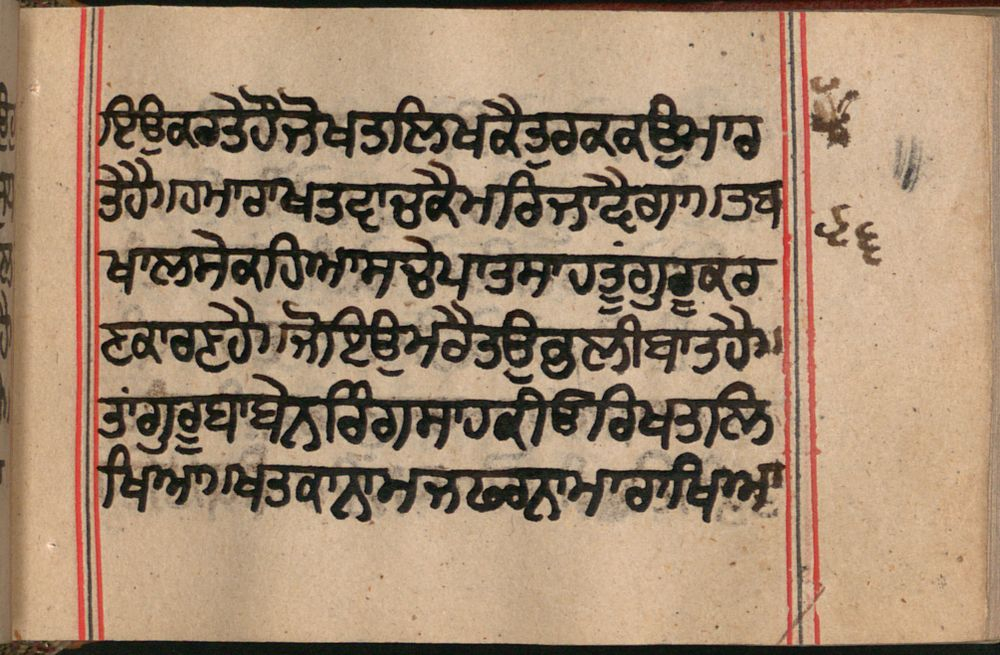 ਇਉਕਰਤੇਹੌਜੋਖਤਲਿਖਕੈਤੁਰਕਕਉਮਾਰ
ਤੇਹੈ॥ਹਮਾਰਾਖਤਵਾਚਕੈਮਰਿਜਾਵੈਗਾ॥ਤਬ
ਖਾਲਸੇਕਹਿਆਸਚੇਪਾਤਸਾਹਤੂੰਗੁਰੂਕਰ
ਣਕਾਰਣਹੈ॥ਜੋਇਉਮਰੈਤਉਭਲੀਬਾਤਹੈ॥
ਤਾਂਗੁਰੂਬਾਬੇਨਰਿੰਗਸਾਹਕੀਓਰਿਖਤਲਿ
ਖਿਆ॥ਖਤਕਾਨਾਮਜਫਰਨਾਮਾਰਾਖਿਆ
੬੬